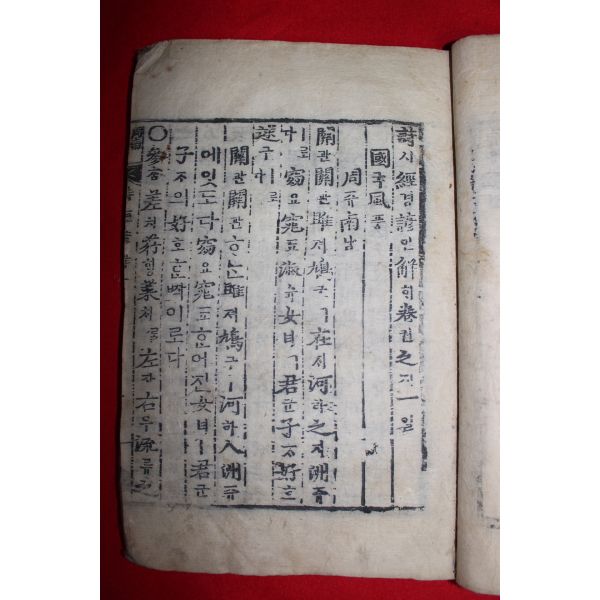 詩시經경諺언解ᄒᆡ卷권之지一일
國국風풍
周쥬南남
關관關관雎져鳩구ㅣ在ᄌᆡ河하之지洲쥬
로다窈요窕됴淑슉女녀ㅣ君군子ᄌᆞ好호
逑구ㅣ로다
關관關관ᄒᆞᆫ雎져鳩구ㅣ河하人洲쥬
에잇도다窈요窕됴ᄒᆞᆫ어진女녀ㅣ君군
子ᄌᆞ의好호ᄒᆞᆫᄧᅡᆨ이로다
○參ᄎᆞᆷ差치荇ᄒᆡᆼ菜ᄎᆡ를左좌右우流류之지